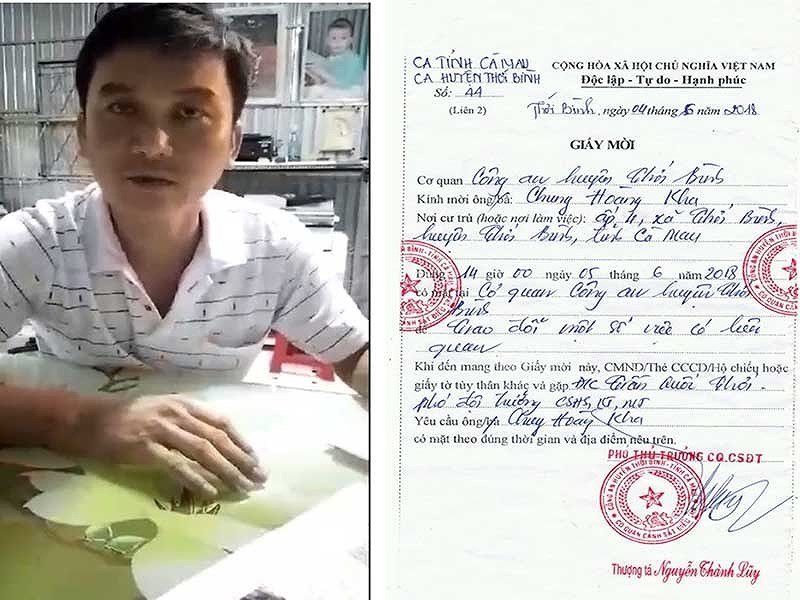 CA TỈNH CÀ MAU
CA HUYỆN THỚI BÌNH
Số: 44
(Liên 2)
CỘNG HÒA XÃ HỘI CHỦ NGHĨA VIỆT NAM
Độc lập - Tự do - Hạnh phúc
Thới Bình, ngày 04 tháng 6 năm 2018
GIẤY MỜI
Cơ quan Công an huyện Thới Bình
Kính mời ông/bà: Chung Hoàng Kha
Nơi cư trú (hoặc nơi làm việc): ấp 11, xã Thới Bình,
huyện Thới Bình, tỉnh Cà Mau
Đúng 14 giờ 00 ngày 05 tháng 6 năm 2018
có mặt tại Cơ quan Công an huyện Thới
Bình
để Trao đổi một số việc có liên
quan
Khi đến mang theo Giấy mời này, CMND/Thẻ CCCD/Hộ chiếu hoặc
giấy tờ tùy thân khác và gặp ĐC Trần Quốc Thới.
phó đội trưởng CSHS, KT, MT
Yêu cầu ông/bà Chung Hoàng Kha
có mặt theo đúng thời gian và địa điểm nêu trên.
PHÓ THỦ TRƯỞNG CQ.CSĐT
CÔNG AN HUYỆN THỚI BÌNH - TỈNH CÀ MAU
CƠ QUAN CẢNH SÁT ĐIỀU TRA
Thượng tá Nguyễn Thành Lũy